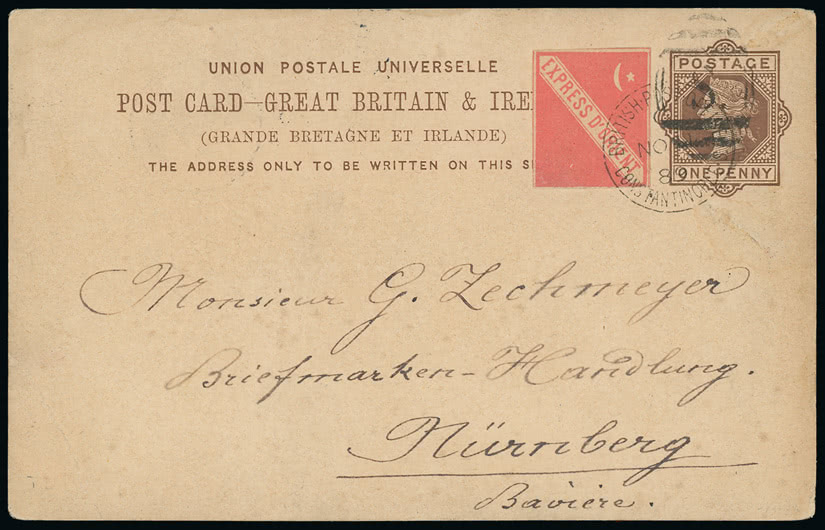 UNION POSTALE UNIVERSELLE
POST CARD—GREAT BRITAIN & IRE
(GRANDE BRETAGNE ET IRLANDE)
THE ADDRESS ONLY TO BE WRITTEN ON THIS SI
EXPRESS D'ORIENT
POSTAGE
ONE PENNY
BRITISH
NO
89
CONSTANTINOPLE
Monsieur G. Zechmeyer
Briefmarken-Handlung.
Nürnberg
Bavière.